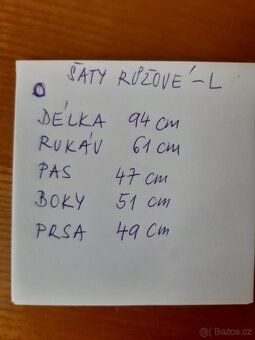 ŠATY RŮŽOVÉ - L
DÉLKA 94 cm
RUKÁV 61 cm
PAS 47 cm
BOKY 51 cm
PRSA 49 cm
© Bazos.cz